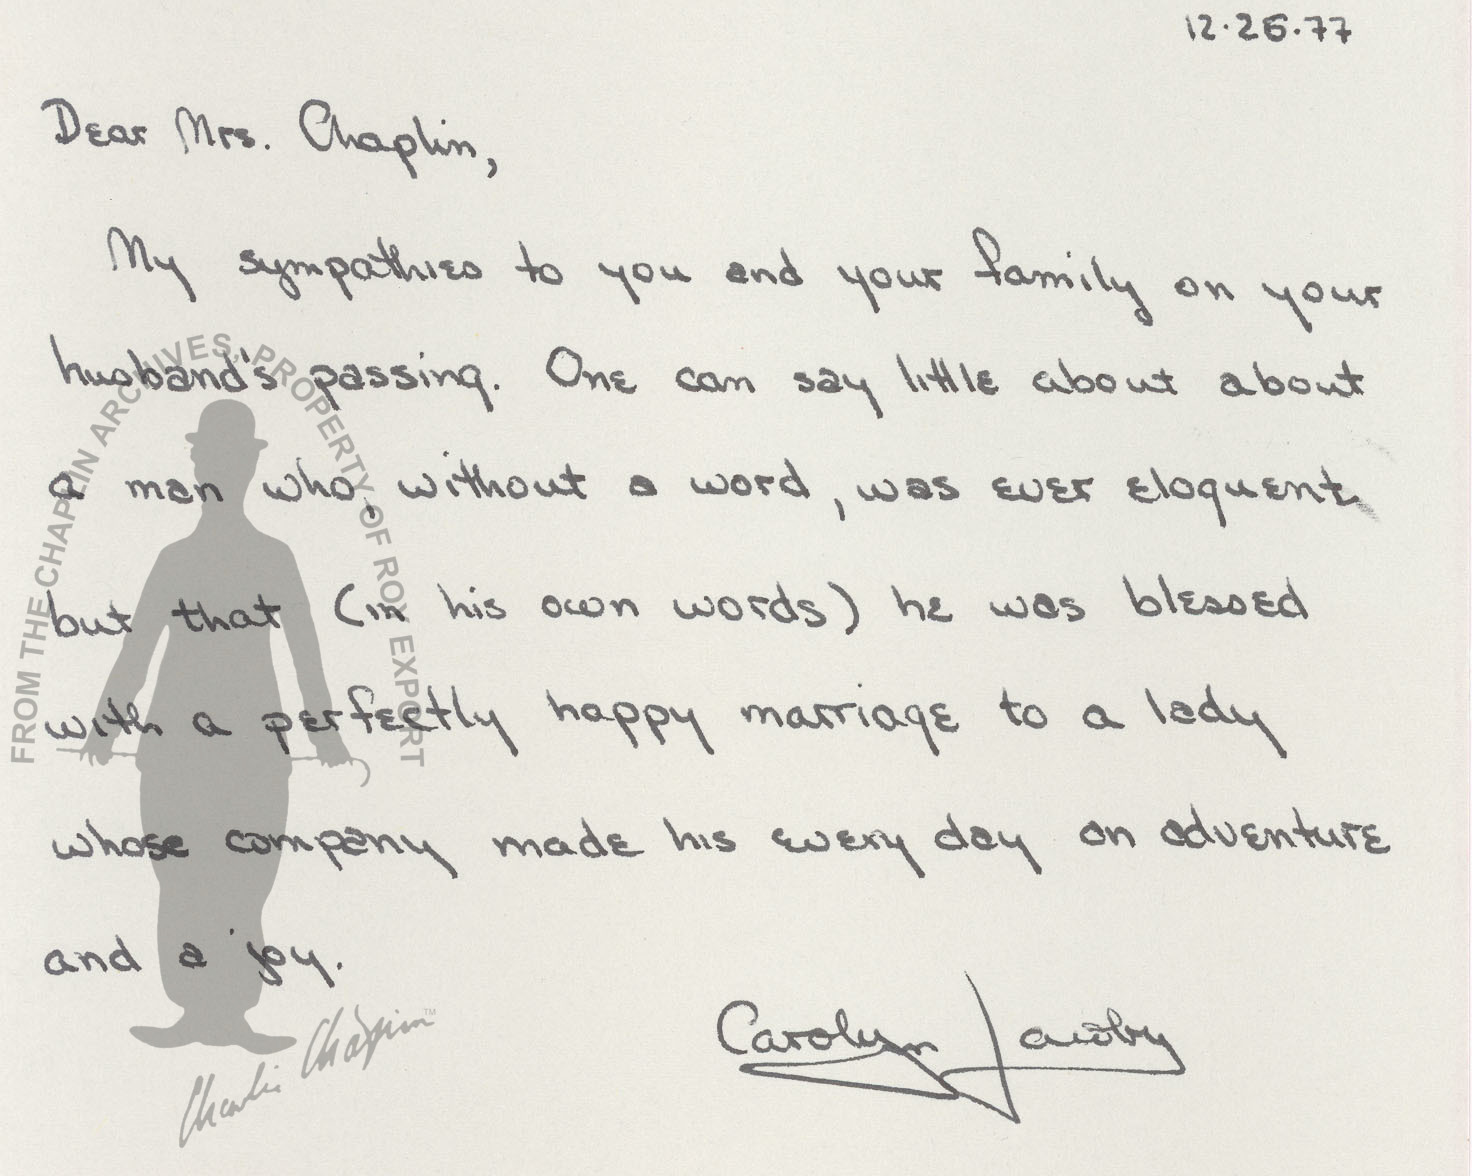 12.26.77
Dear Mrs. Chaplin,
My sympathies to you and your family on your
husband's passing. One can say little about about
a man who, without a word, was ever eloquent
but that (in his own words) he was blessed
with a perfectly happy marriage to a lady
whose company made his every day an adventure
and a joy.
Carolyn Jacoby
FROM THE CHAPLIN ARCHIVES, PROPERTY OF ROY EXPORT
Charlie Chaplin™